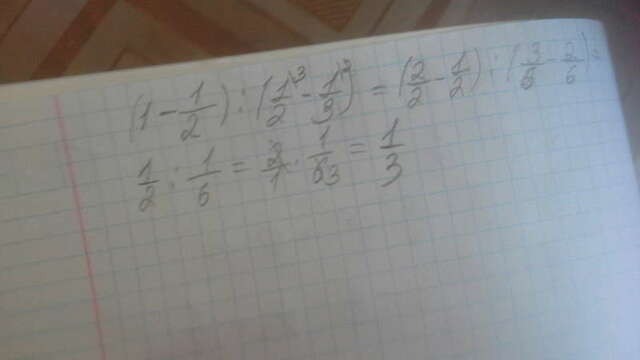 (1 - 1/2) : (1/2^3 - 1/3^2) = (2/2 - 1/2) : (3/6 - 2/6) =
1/2 : 1/6 = 2/1 · 1/6 3 = 1/3